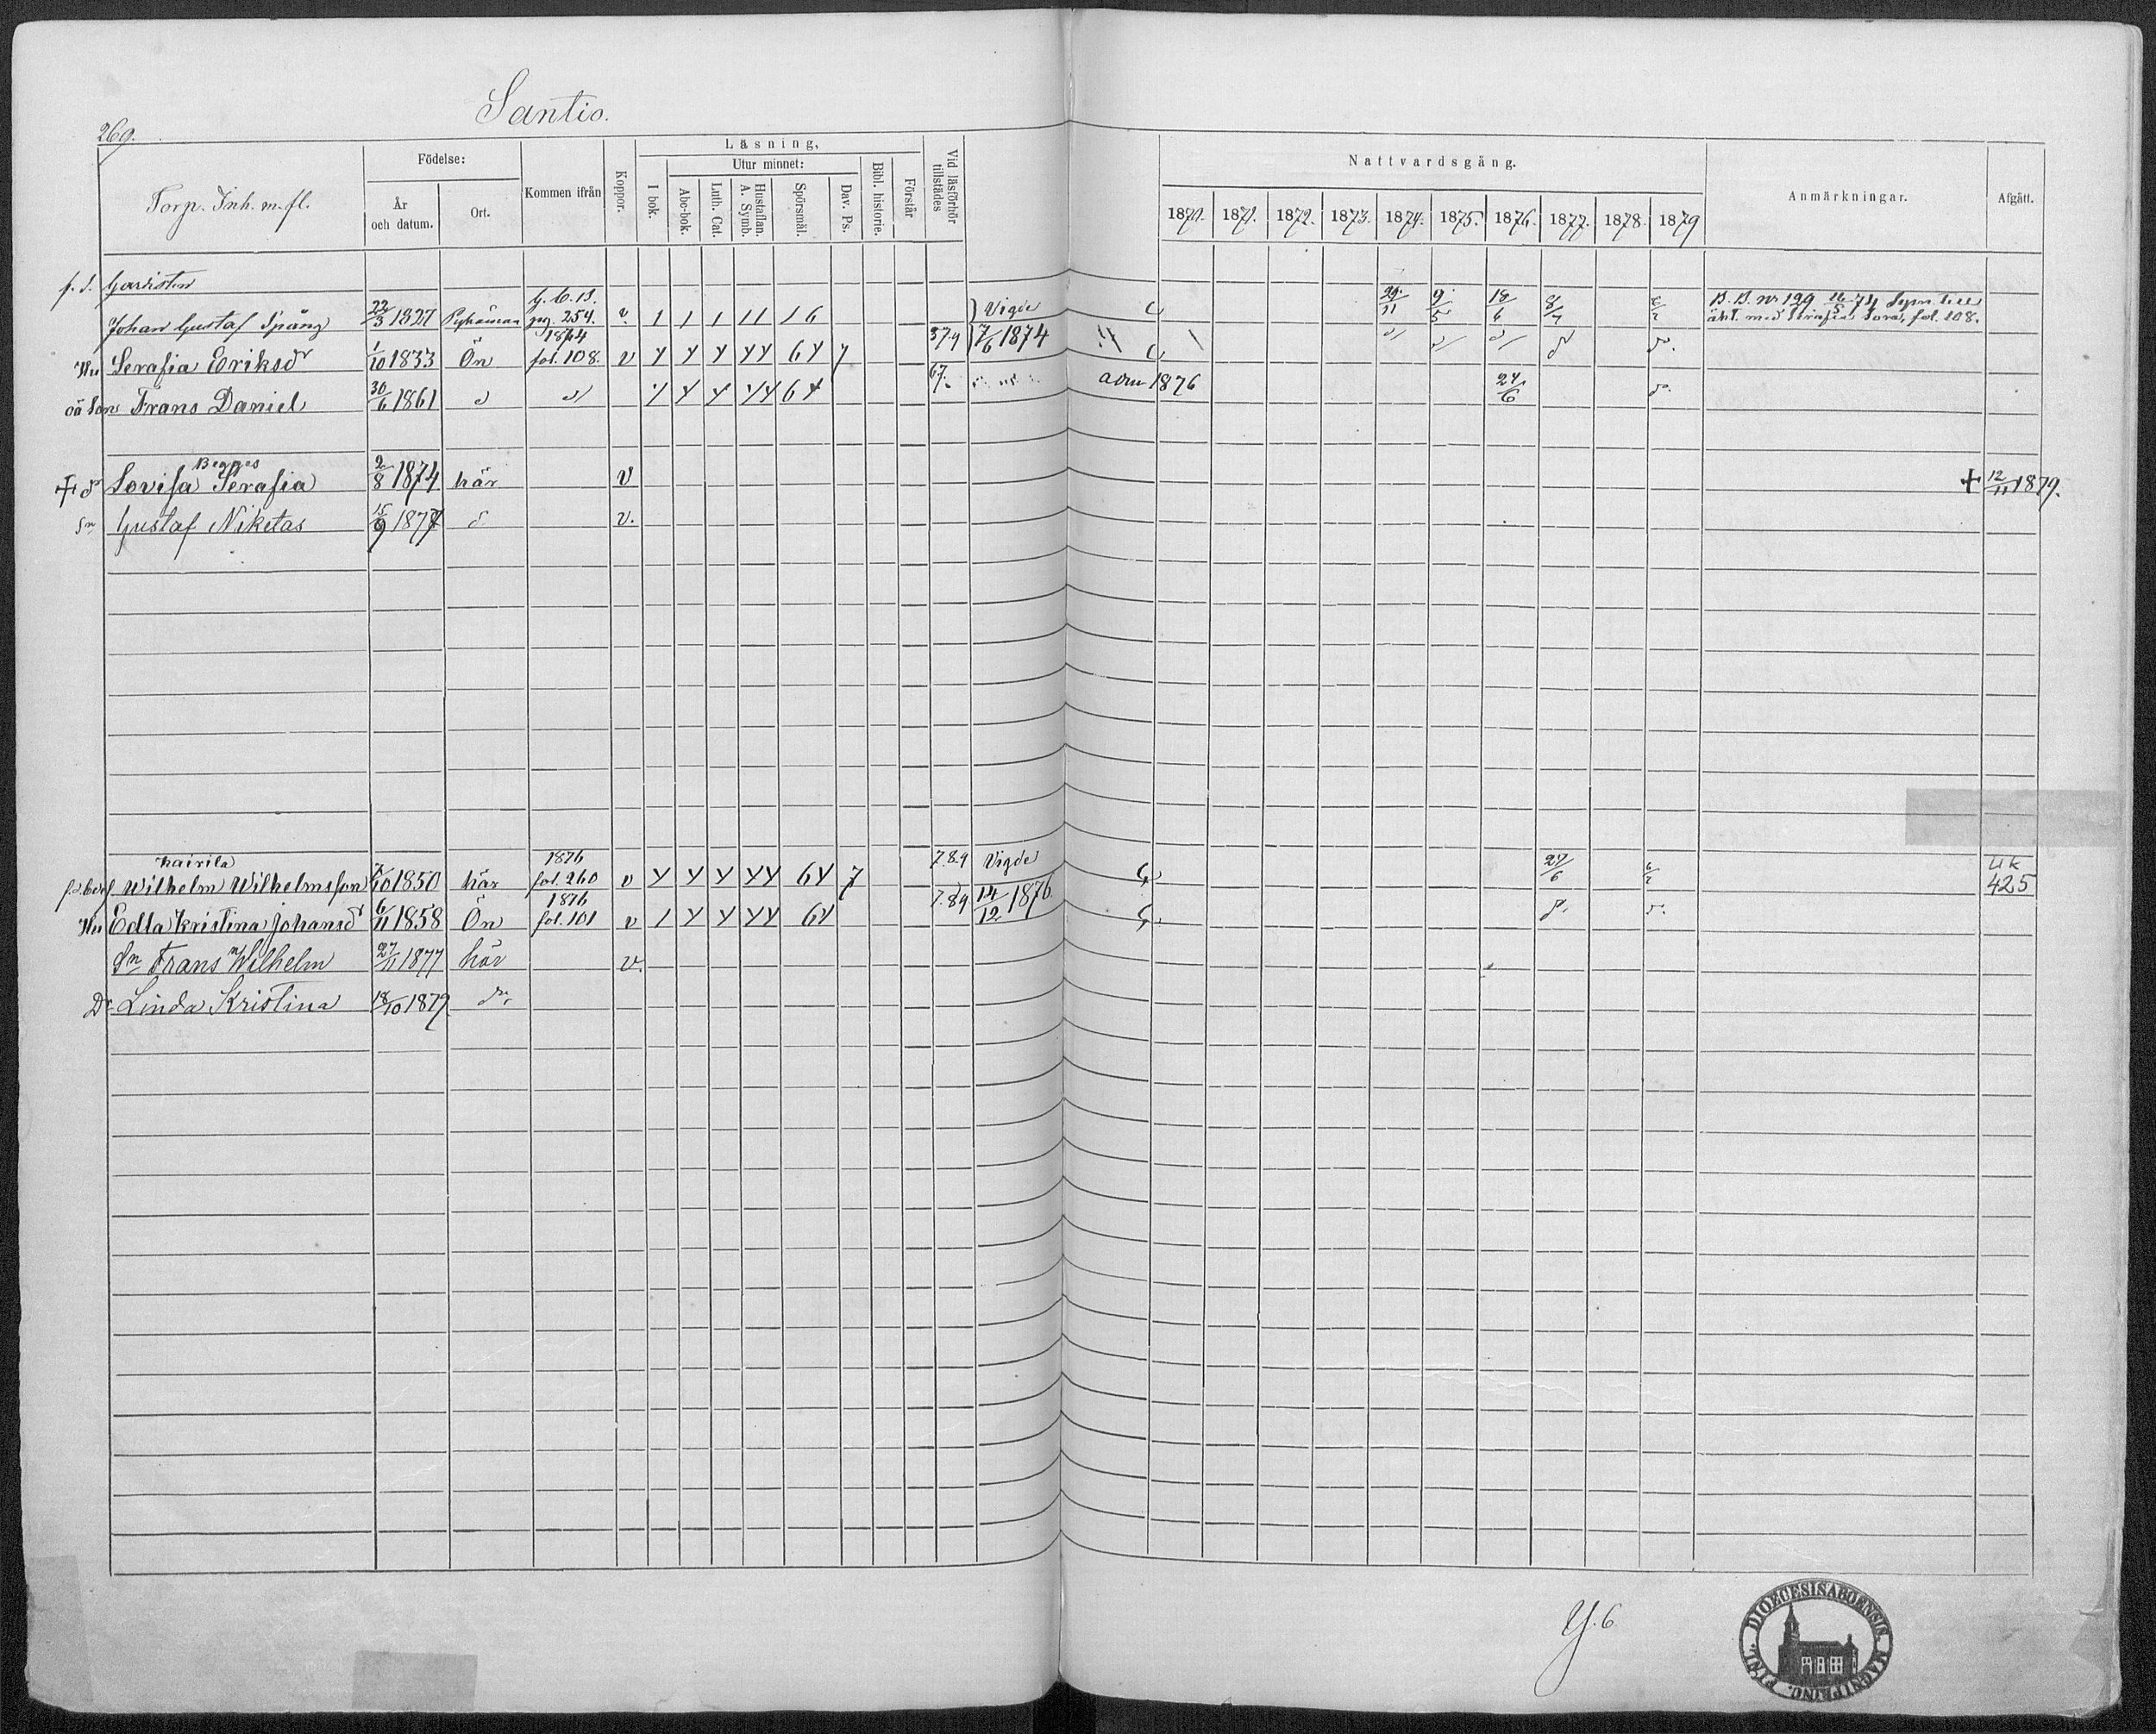 Santio.
269.
Torp. Inh. m. fl.
Födelse:
År och datum.
Ort.
Kommen ifrån
Koppor.
Läsning,
I bok.
Utur minnet:
Abc-bok.
Luth. Cat.
Hustaflan. A. Symb.
Spörsmål.
Dav. Ps.
Bibl. historie.
Förstår
Vid läsförhör tillstädes
Nattvardsgång.
1870. 1871. 1872. 1873. 1874. 1875. 1876. 1877. 1878. 1879
Anmärkningar.
Afgått.
f. d. Gardisten
Johan Gustaf Spång 22/3 1827 Pyhämaa pag. 254. v. 1 1 1 11 16 Vigde 29/11 9/5 18/6 8/7
B. B. nr 129
äkt. med Serafia fol. 108.
Hu Serafia Eriksdr 1/10 1833 Ön 1874 fol. 108. v Y Y Y YY 6Y 7 379 17/6 1874
oä Son Frans Daniel 30/6 1861 Y Y Y YY 6Y 67. adm 1876 24/6
Begges
+ dr Lovisa Serafia 2/8 1874 här v + 12/11 1879.
Sn Gustaf Niketas 15/9 1877 d v.
Kairila
Wilhelm Wilhelmsson 7/10 1850 här 1876 fol. 260 v Y Y Y YY 6Y 7 7.8.9 Vigde 27/6 6/7 Uk 425
Hu Edla Kristina Johansdr 6/11 1858 Ön 1876 fol. 101 v 1 Y Y YY 6Y 7.89 14/12 1876.
Sn Frans Wilhelm 27/11 1877 här v.
Dr Linda Kristina 18/10 1879 do
Y. 6
DIOECESIS ABOENSIS. MAGNI PRINC. FINL.